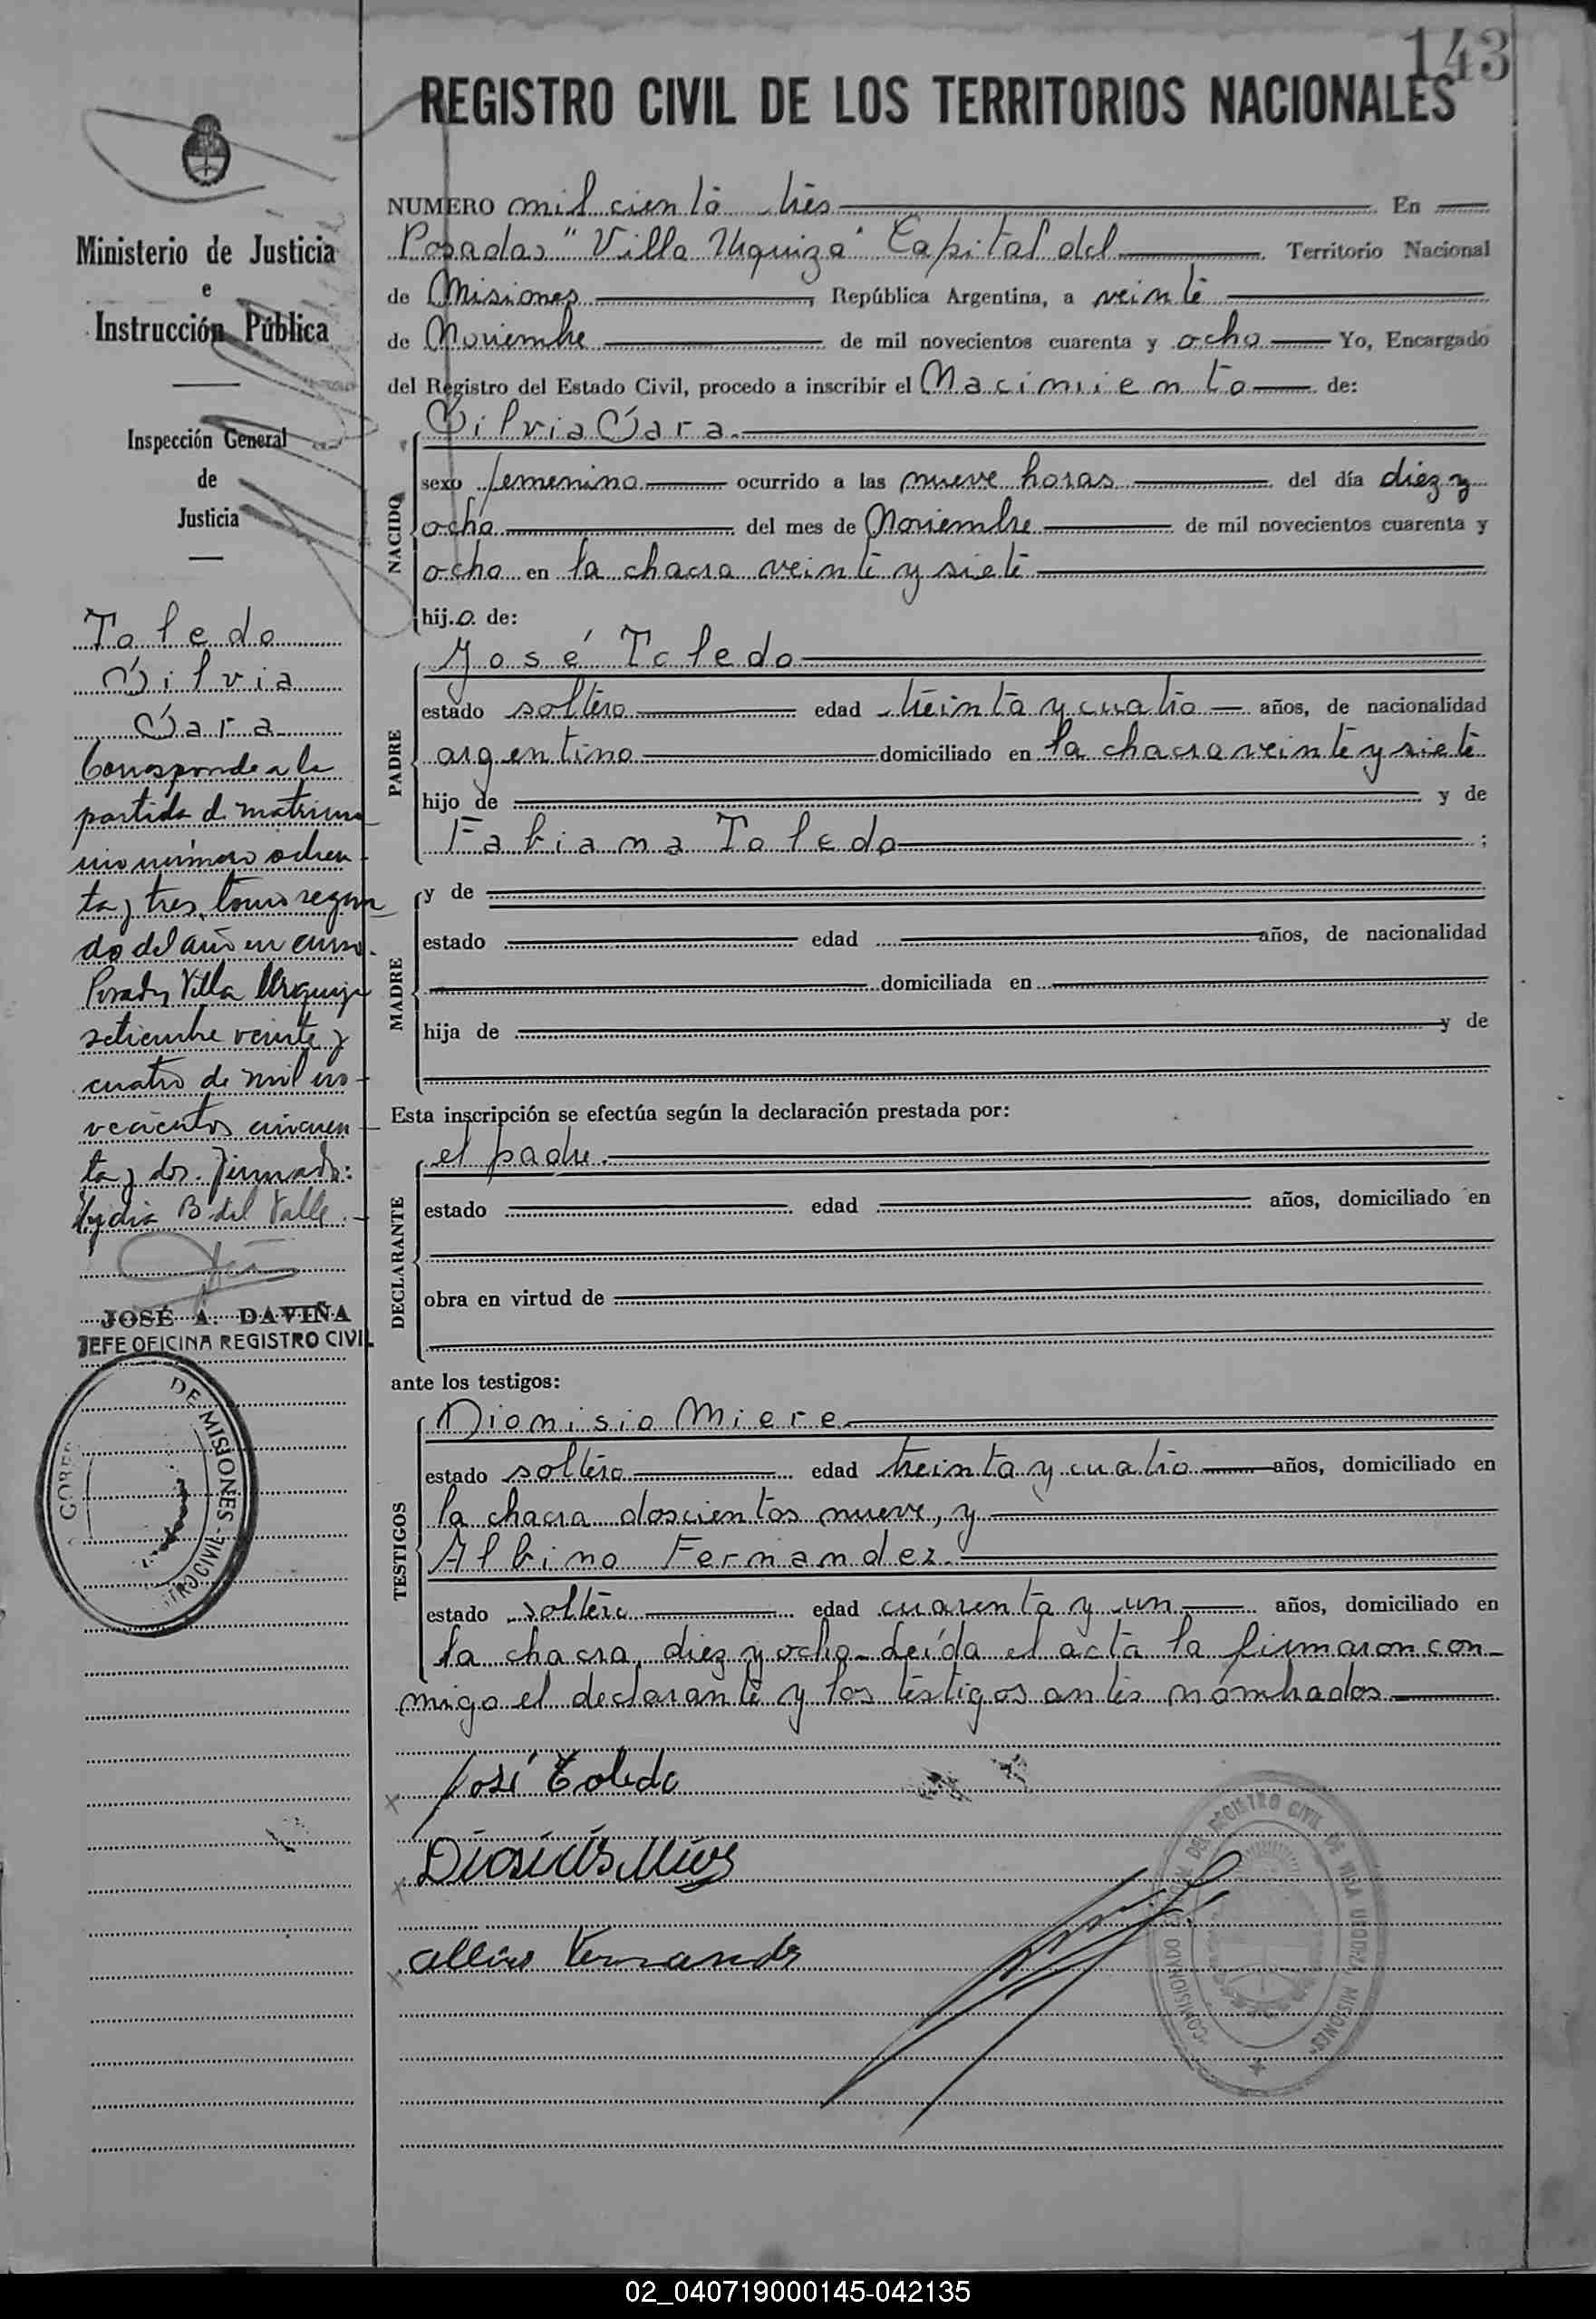 143
REGISTRO CIVIL DE LOS TERRITORIOS NACIONALES
Ministerio de Justicia
e
Instrucción Pública
Inspección General
de
Justicia
Toledo
Silvia
Sara
Corresponde a la
partida d. matrimo
nio número ochen-
ta y tres, tomo segun
do del año en curso.
Posadas Villa Urquiza
setiembre veinte y
cuatro de mil no-
vecientos cincuen-
ta y dos. Firmado:
Lydia B. del Valle.-
JOSÉ A. DAVIÑA
JEFE OFICINA REGISTRO CIVIL
DE MISIONES -
NUMERO mil ciento tres En
Posadas "Villa Urquiza" Capital del Territorio Nacional
de Misiones, República Argentina, a veinte
de Noviembre de mil novecientos cuarenta y ocho Yo, Encargado
del Registro del Estado Civil, procedo a inscribir el Nacimiento de:
NACIDO
Silvia Sara.
sexo femenino ocurrido a las nueve horas del día diez y
ocho del mes de Noviembre de mil novecientos cuarenta y
ocho en la chacra veinte y siete
hij.o. de:
PADRE
José Toledo
estado soltero edad treinta y cuatro años, de nacionalidad
argentino domiciliado en la chacra veinte y siete
hijo de y de
Fabiana Toledo ;
MADRE
y de
estado edad años, de nacionalidad
domiciliada en
hija de y de
Esta inscripción se efectúa según la declaración prestada por:
DECLARANTE
el padre.
estado edad años, domiciliado en
obra en virtud de
ante los testigos:
TESTIGOS
Dionisio Miere
estado soltero edad treinta y cuatro años, domiciliado en
la chacra doscientos nueve, y
Albino Fernandez.
estado soltero edad cuarenta y un años, domiciliado en
la chacra diez y ocho. Leída el acta la firmaron con-
migo el declarante y los testigos antes nombrados
José Toledo
COMISIONADO DEL REGISTRO CIVIL DE VILLA URQUIZA MISIONES
02_040719000145-042135